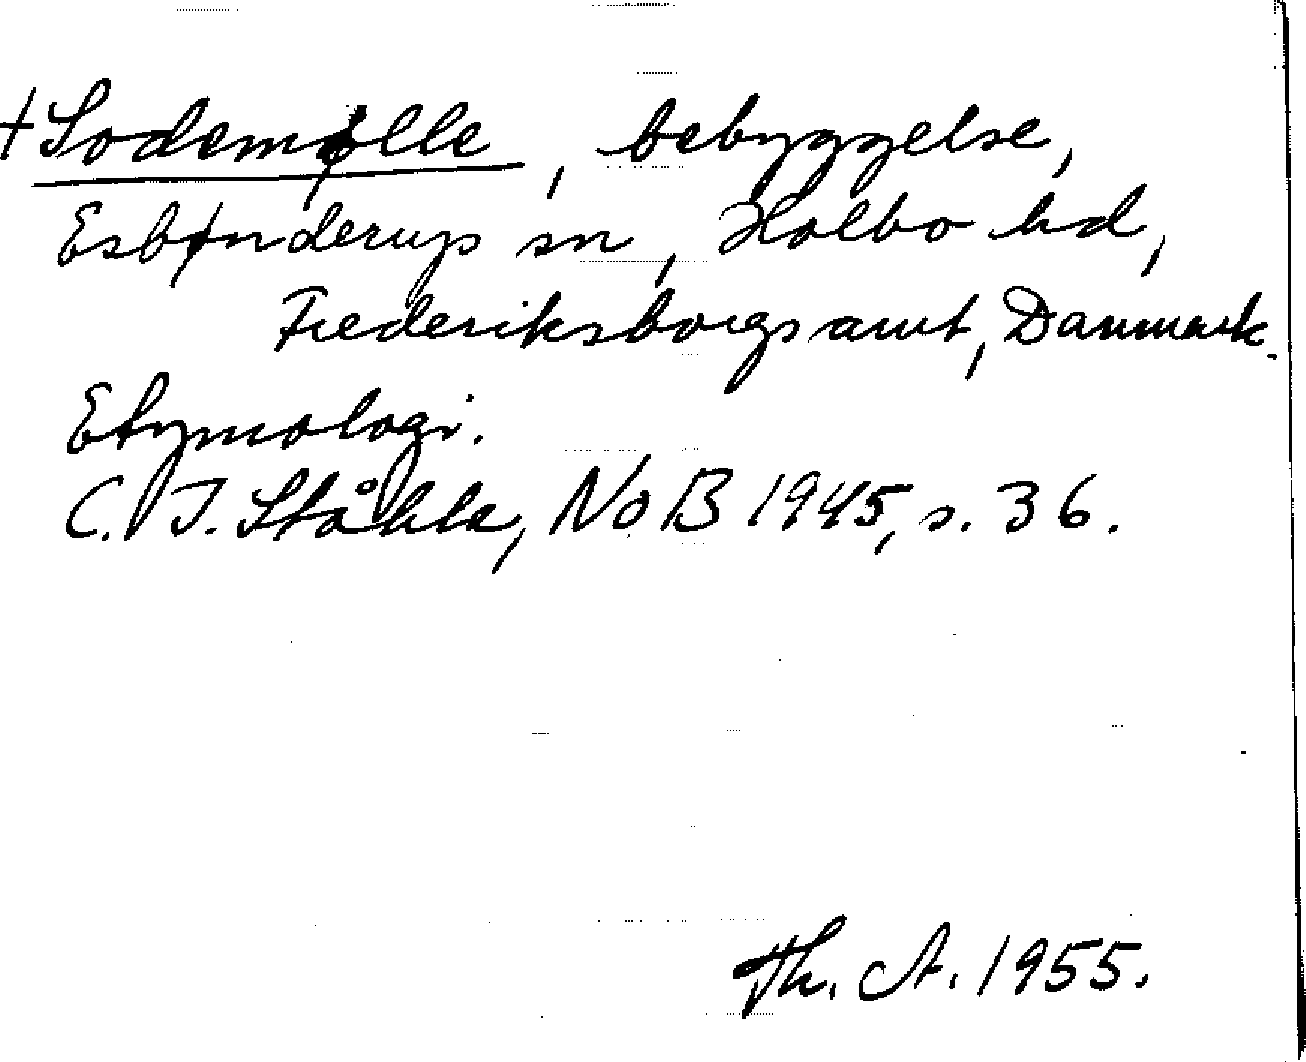 +Sodemølle, bebyggelse,
Esbønderup sn, Holbo hd,
Frederiksborgs amt, Danmark.
Etymologi.
C. I. Ståhle, NoB 1945, s. 36.
Th. A. 1955.